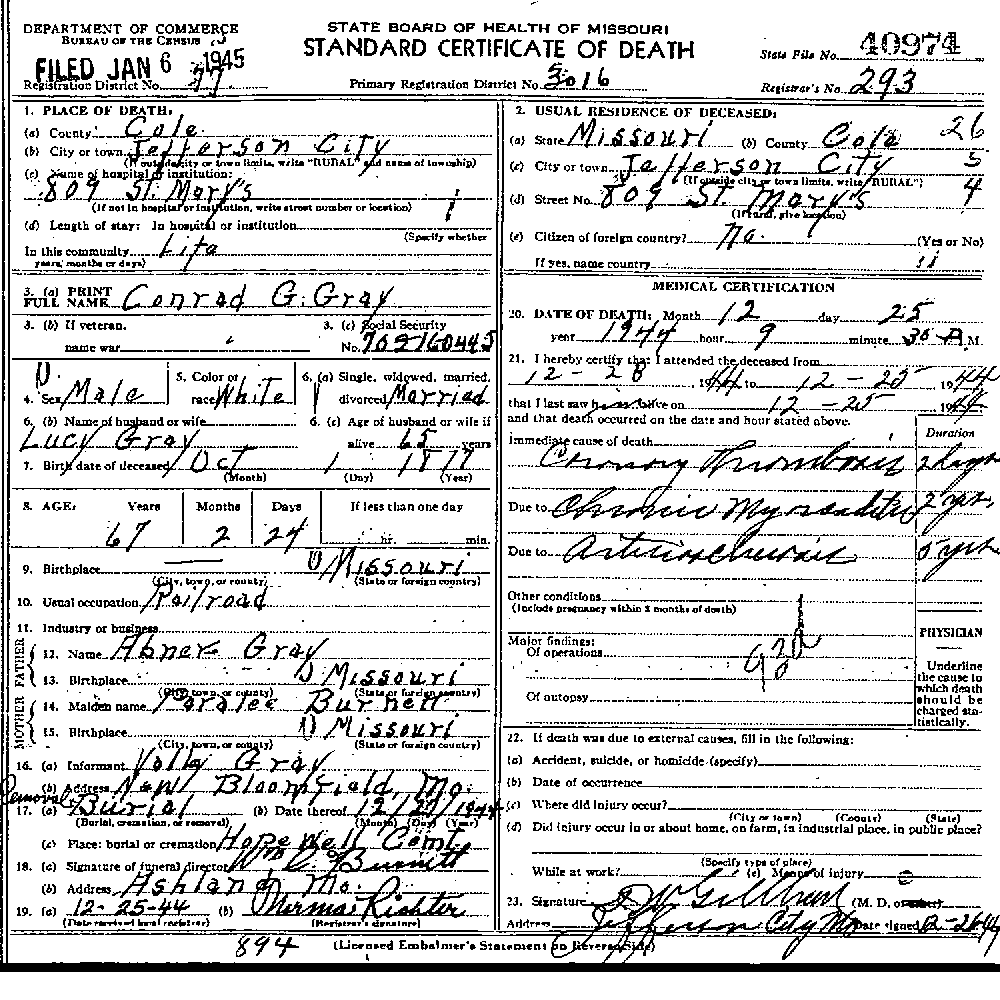 DEPARTMENT OF COMMERCE
BUREAU OF THE CENSUS
STATE BOARD OF HEALTH OF MISSOURI
STANDARD CERTIFICATE OF DEATH
State File No. 40974
FILED JAN 6 1945
Registration District No. 77
Primary Registration District No. 3016
Registrar's No. 293
1. PLACE OF DEATH:
(a) County Cole
(b) City or town Jefferson City
(If outside city or town limits, write "RURAL" and name of township)
(c) Name of hospital or institution:
809 St. Mary's
(If not in hospital or institution, write street number or location)
(d) Length of stay: In hospital or institution
(Specify whether
In this community Life
years, months or days)
2. USUAL RESIDENCE OF DECEASED:
(a) State Missouri (b) County Cole 26
(c) City or town Jefferson City 5
(If outside city or town limits, write "RURAL")
(d) Street No. 809 St. Mary's 4
(If rural, give location)
(e) Citizen of foreign country? No. (Yes or No)
If yes, name country
3. (a) PRINT FULL NAME Conrad G. Gray
3. (b) If veteran, name war
3. (c) Social Security No. 709160445
4. Sex Male
5. Color or race White
6. (a) Single, widowed, married, divorced Married
6. (b) Name of husband or wife Lucy Gray
6. (c) Age of husband or wife if alive 65 years
7. Birth date of deceased Oct 1 1877
(Month) (Day) (Year)
8. AGE: Years Months Days If less than one day
67 2 24 hr. min.
9. Birthplace Missouri
(City, town, or county) (State or foreign country)
10. Usual occupation Railroad
11. Industry or business
FATHER
12. Name Abner Gray
13. Birthplace Missouri
(City, town, or county) (State or foreign country)
MOTHER
14. Maiden name Paralee Burnett
15. Birthplace Missouri
(City, town, or county) (State or foreign country)
16. (a) Informant Volly Gray
(b) Address New Bloomfield, Mo.
Removal
17. (a) Burial (b) Date thereof 12/27/1944
(Burial, cremation, or removal) (Month) (Day) (Year)
(c) Place: burial or cremation Hopewell Cemt
18. (a) Signature of funeral director Burnett
(b) Address Ashland Mo.
19. (a) 12-25-44 (b) Richter
(Date received local registrar) (Registrar's signature)
MEDICAL CERTIFICATION
20. DATE OF DEATH: Month 12 day 25
year 1944 hour 9 minute 30 A.M.
21. I hereby certify that I attended the deceased from
12-28 1944 to 12-25 1944
that I last saw him alive on 12-25 1944
and that death occurred on the date and hour stated above.
Duration
Immediate cause of death
Coronary Thrombosis 2 days
Due to Chronic Myocarditis 2 yrs.
Due to Arteriosclerosis 5 yrs
Other conditions
(Include pregnancy within 3 months of death)
Major findings:
Of operations
Of autopsy
PHYSICIAN
Underline the cause to which death should be charged statistically.
22. If death was due to external causes, fill in the following:
(a) Accident, suicide, or homicide (specify)
(b) Date of occurrence
(c) Where did injury occur?
(City or town) (County) (State)
(d) Did injury occur in or about home, on farm, in industrial place, in public place?
(Specify type of place)
While at work? (e) Means of injury
23. Signature (M. D. or other)
Address Jefferson City Mo Date signed
894
(Licensed Embalmer's Statement on Reverse Side)